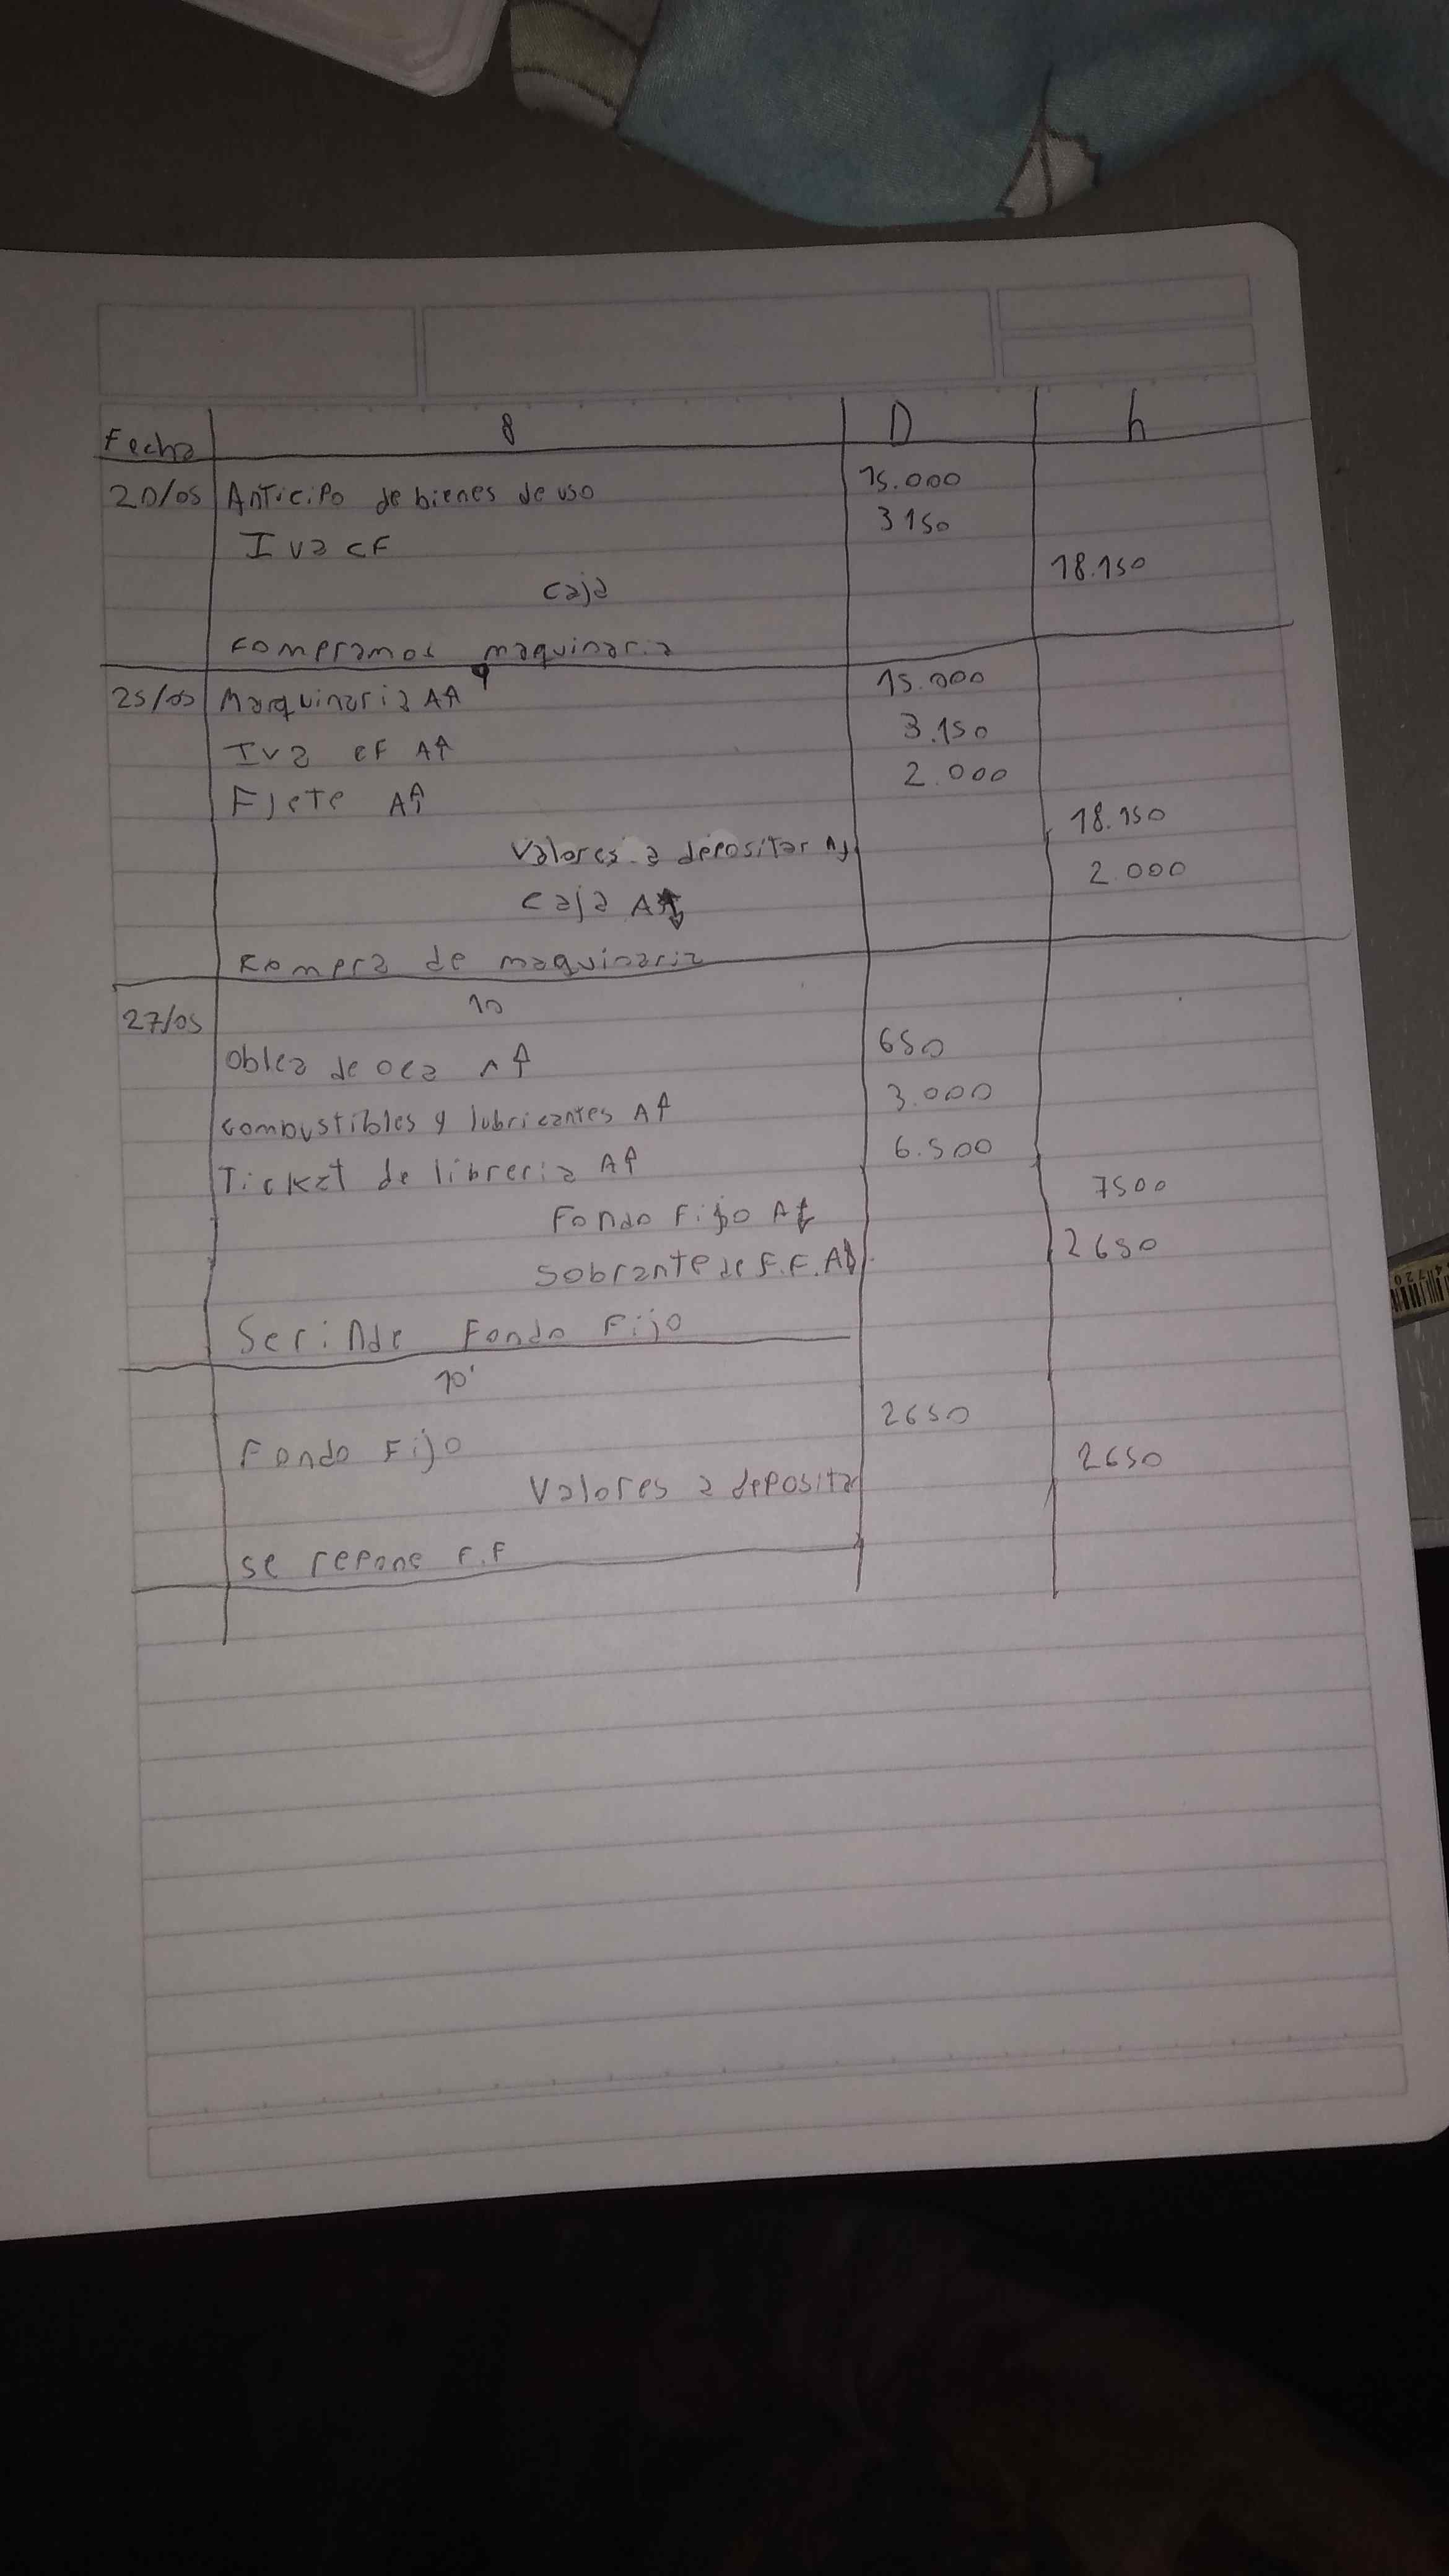 Fecha 8 D h
20/05 Anticipo de bienes de uso 15.000
Iva CF 3150
Caja 18.150
compramos maquinaria
9
25/05 Maquinaria A↑ 15.000
Iva CF A↑ 3.150
Flete A↑ 2.000
Valores a depositar A↓ 18.150
Caja A↓ 2.000
compra de maquinaria
10
27/05
Oblea de oca A↑ 650
combustibles y lubricantes A↑ 3.000
Ticket de libreria A↑ 6.500
Fondo Fijo A↓ 7500
Sobrante de F.F. A↓ 2650
Se rinde Fondo Fijo
10'
Fondo Fijo 2650
Valores a deposita 2650
se repone F.F